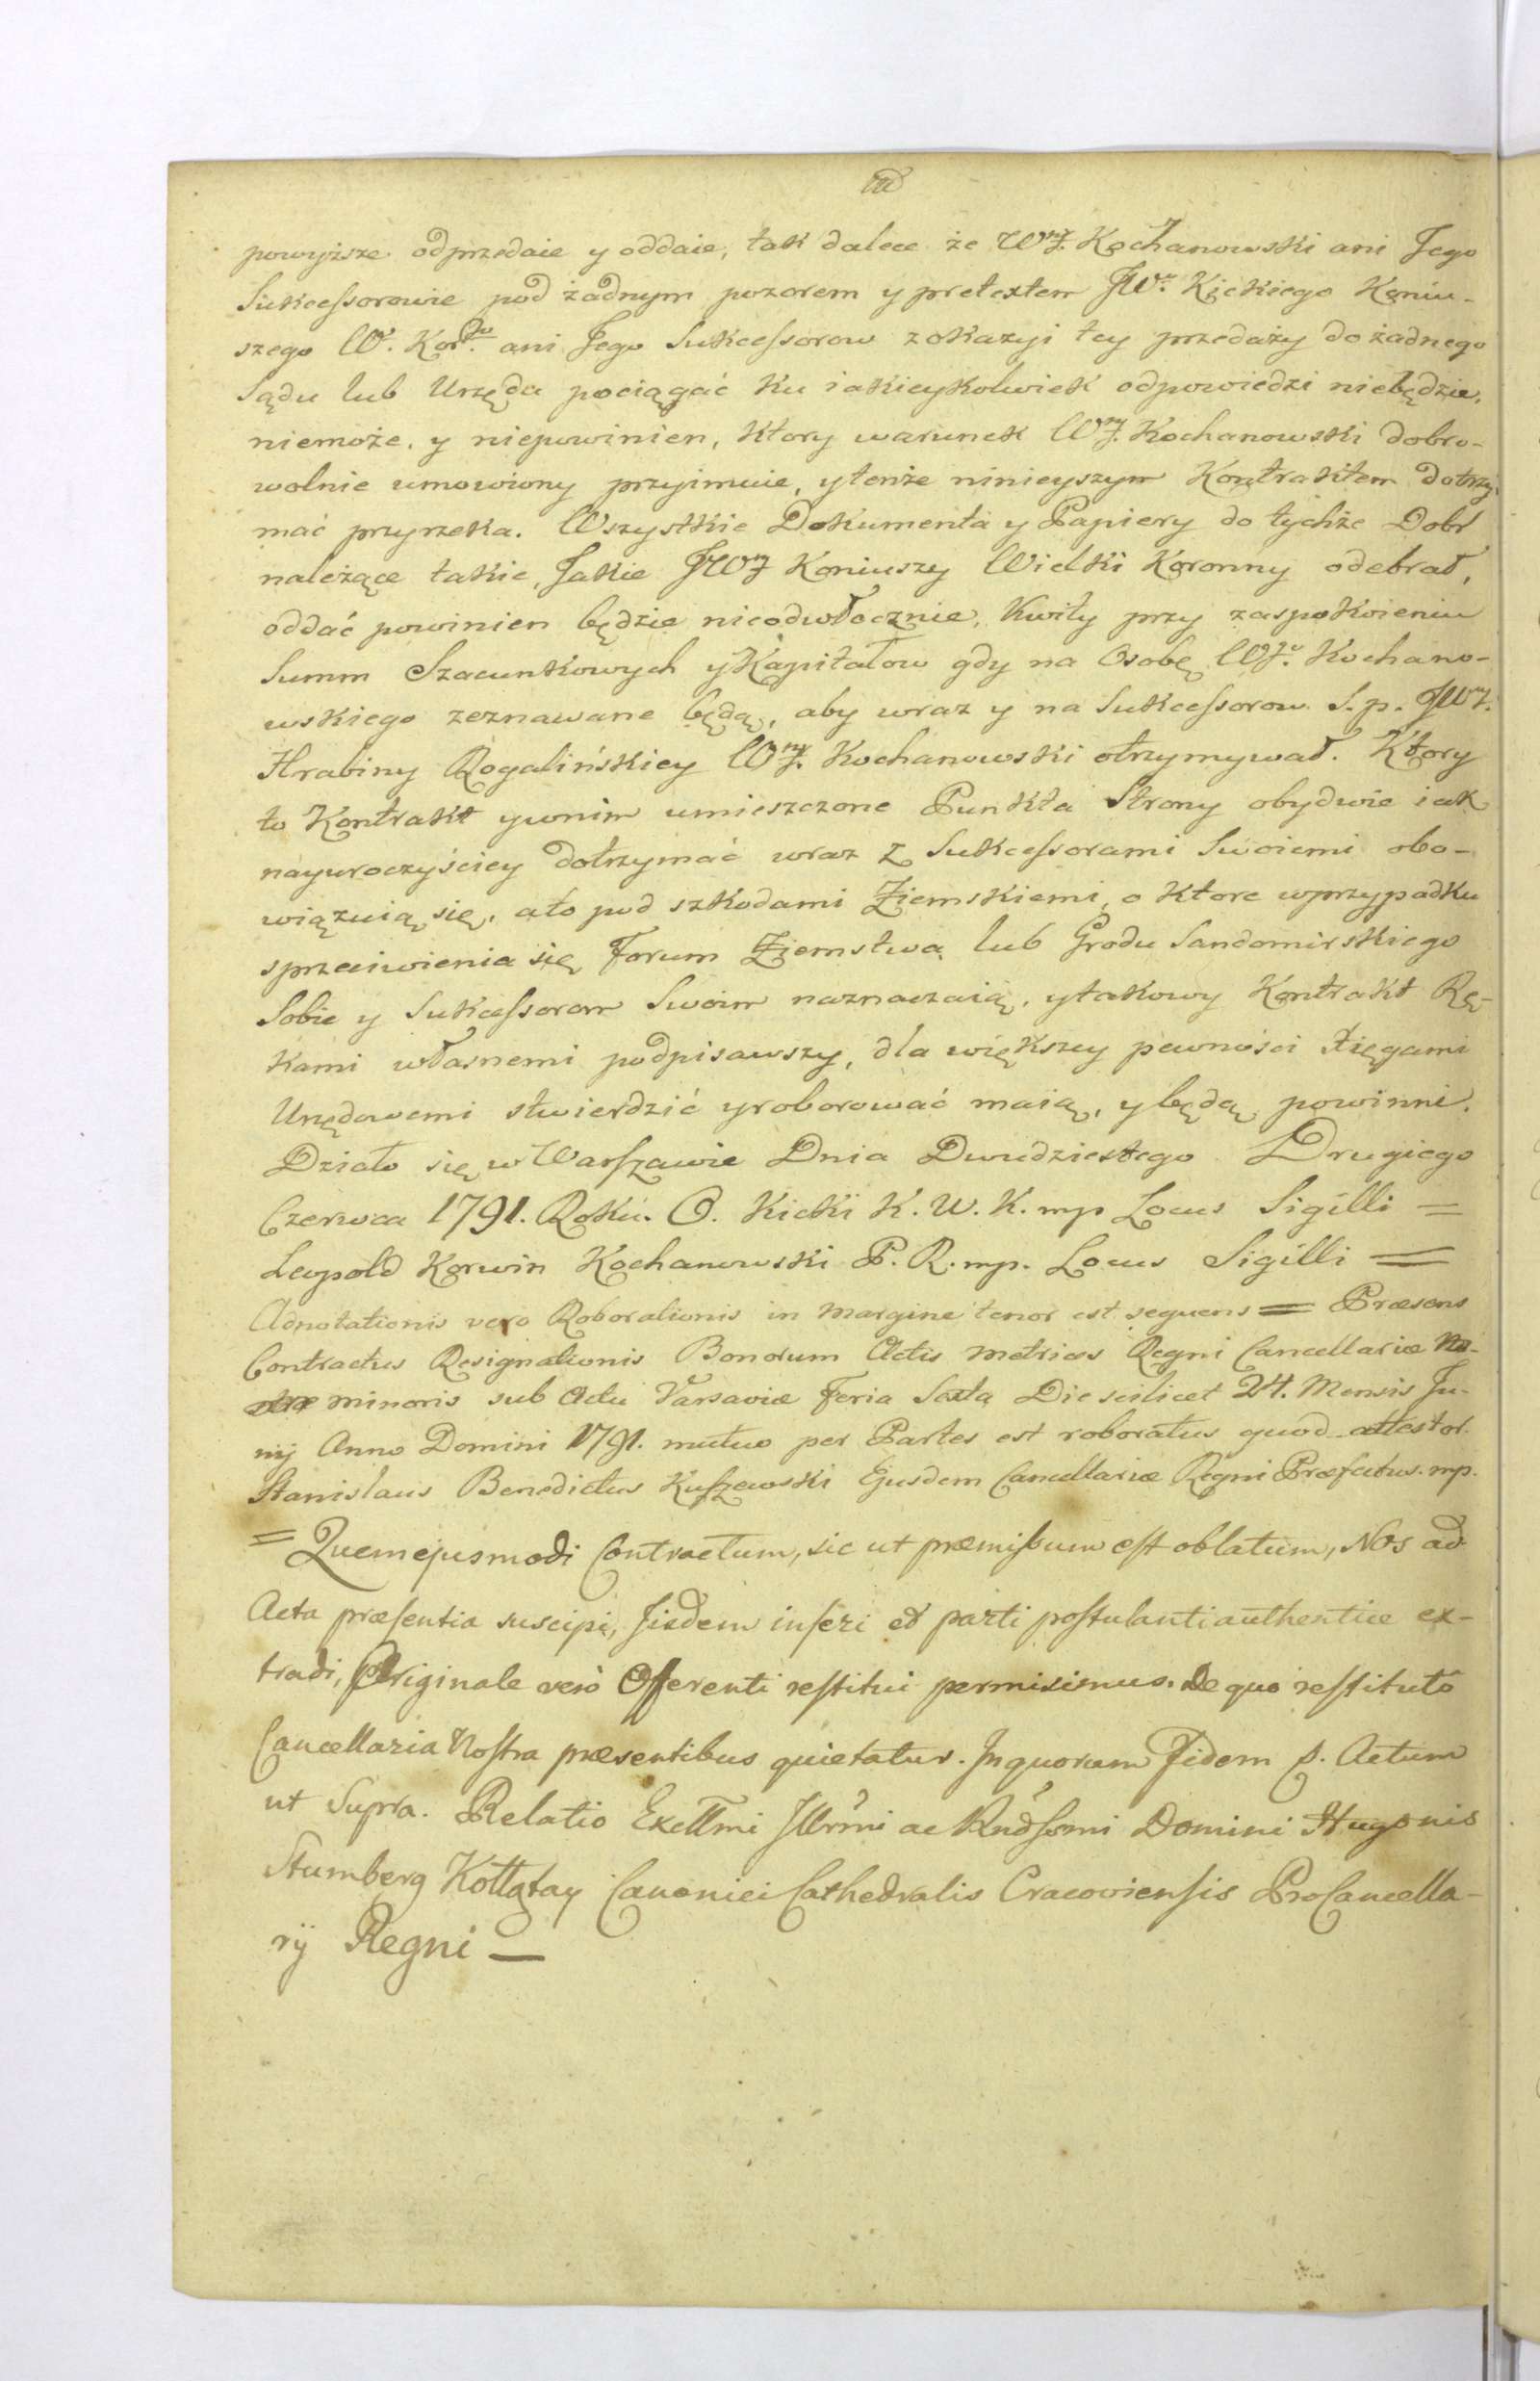 powyższe odprzedaie y oddaie, tak dalece że Wny J. Kochanowski ani Jego
Sukcessorowie pod żadnym pozorem y pretextem JWo. Kickiego Koniu-
szego W. Kor. ani Jego Sukcessorow z okazyi tey przedaży do żadnego
Sądu lub Urzędu pociągać ku iakieykolwiek odpowiedzi niebędzie,
niemoże, y niepowinien, ktory warunek Wny J. Kochanowski dobro-
wolnie umowiony przyimuie, y tenże ninieyszym Kontraktem dotrzy-
mać przyrzeka. Wszystkie Dokumenta y Papiery do tychże Dobr
należące takie, Jakie JWny J Koniuszy Wielki Koronny odebrał,
oddać powinien będzie nieodwłocznie, Kwity przy zaspokoieniu
Summ Szacunkowych y Kapitałow gdy na Osobę WJo. Kochano-
wskiego zeznawane będą, aby wraz y na Sukcessorow S. p. JWJ.
Hrabiny Rogalińskiey Wny J. Kochanowski otrzymywał. Ktory
to Kontrakt y wnim umieszczone Punkta Strony obydwie iak
nayuroczyściey dotrzymać wraz z Sukcessorami Swoiemi obo-
wiązuią się, a to pod szkodami Ziemskiemi, o ktore w przypadku
sprzeciwienia się Forum Ziemstwa lub Grodu Sandomirskiego
Sobie y Sukcessorom Swoim naznaczaią, y takowy Kontrakt Rę-
kami własnemi podpisawszy, dla większey pewności Xięgami
Urzędowemi stwierdzić y roborować maią, y będą powinni.
Działo się w Warszawie Dnia Dwudziestego Drugiego
Czerwca 1791. Roku. O. Kicki K. W. K. mp Locus Sigilli =
Leopold Korwin Kochanowski P. R. mp. Locus Sigilli =
Adnotationis vero Roborationis in margine tenor est sequens = Præsens
Contractus Resignationis Bonorum Actis Metrices Regni Cancellariæ
minoris sub Actu Varsaviæ Feria Sexta Die scilicet 24. Mensis Ju-
nij Anno Domini 1791. mutuo per Partes est roboratus quod attestor.
Stanislaus Benedictus Kuszewski Ejusdem Cancellariæ Regni Præfectus. mp.
= Quem ejusmodi Contractum, sic ut præmissum est oblatum, Nos ad
Acta præsentia suscipi, Jisdem inseri et parti postulanti authentice ex-
tradi, Originale verò Offerenti restitui permisimus. De quo restituto
Cancellaria Nostra præsentibus quietatur. In quorum Fidem p. Actum
ut Supra. Relatio Excllmi Jllrmi ac Rndssmi Domini Hugonis
Stumberg Kołłątay Canonici Cathedralis Cracoviensis ProCancella-
rij Regni —